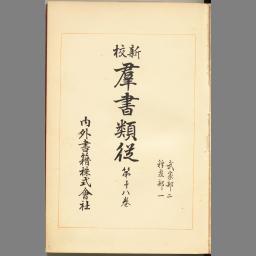 新校
羣書類從
第十八卷
武家部二
釋家部一
內外書籍株式會社